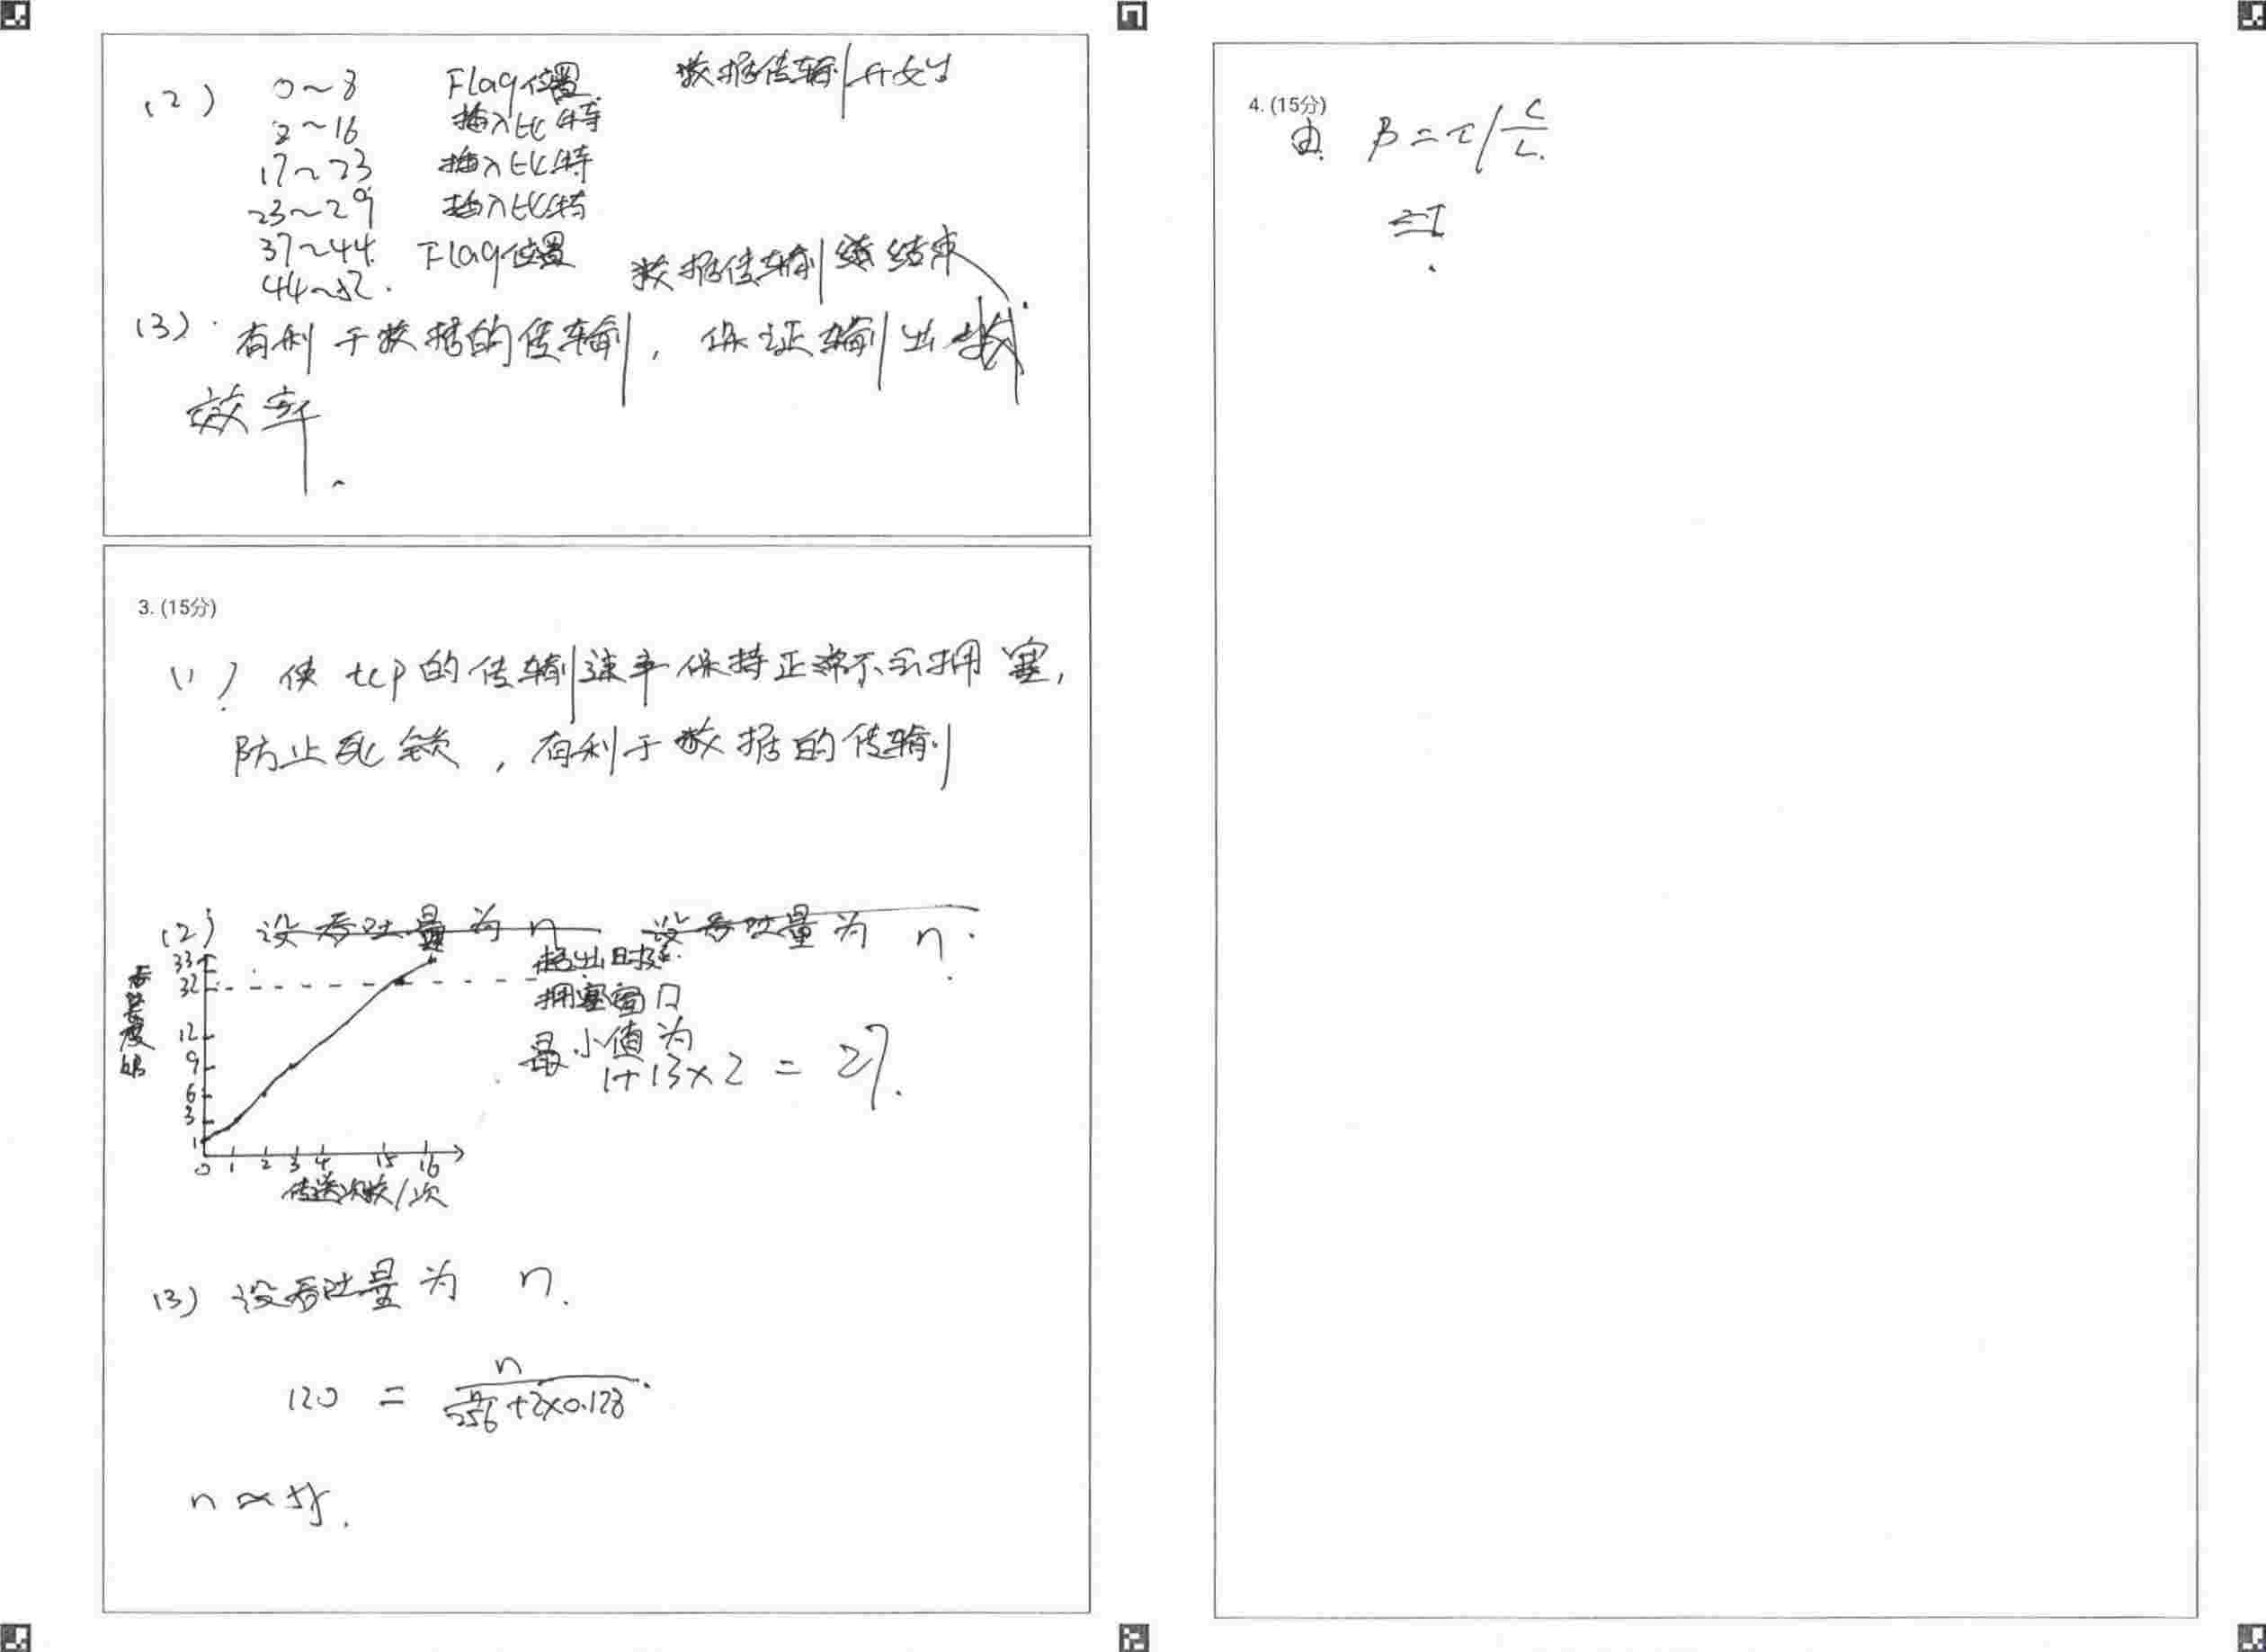 (2) 0~8 Flag位置. 数据传输开始
2~16 插入比特
17~23 插入比特
23~29 插入比特
37~44. Flag位置 数据传输结束
44~52.
(3). 有利于数据的传输, 保证输出
效率.
3. (15分)
(1) 使tcp的传输速率保持正常不会拥塞,
防止死锁, 有利于数据的传输
(2) 设吞吐量为n 设吞吐量为n.
超出时延.
拥塞窗口
最小值为
1+13×2 = 27.
33
32
12
9
6
3
1
0 1 2 3 4 15 16
传送次数/次
(3) 设吞吐量为 n.
120 = n / (n/256 + 2×0.128).
n ≈
4. (15分)
由 β = τ/ C/L.